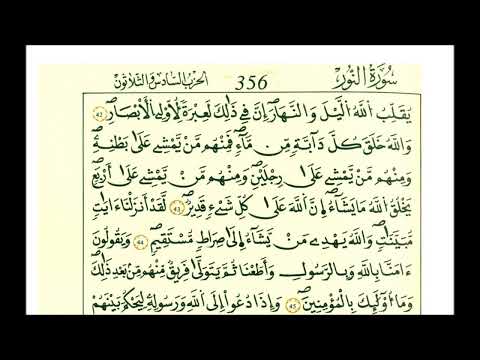 سُورَةُ النُّورِ 356 الحزب السادس والثلاثون
يُقَلِّبُ اُللَّهُ اُلَّيْلَ وَالنَّهَارَۖ إِنَّ فِے ذَٰلِكَ لَعِبْرَةٗ لِّأُوْلِے اِلْأَبْصَٰرِۖ 42
وَاللَّهُ خَلَقَ كُلَّ دَآبَّةٖ مِّن مَّآءٖۖ فَمِنْهُم مَّنْ يَّمْشِے عَلَىٰ بَطْنِهِۦۖ
وَمِنْهُم مَّنْ يَّمْشِے عَلَىٰ رِجْلَيْنِۖ وَمِنْهُم مَّنْ يَّمْشِے عَلَىٰٓ أَرْبَعٖۖ
يَخْلُقُ اُللَّهُ مَا يَشَآءُۖ اِنَّ اَللَّهَ عَلَىٰ كُلِّ شَےْءٖ قَدِيرٞۖ 43 لَّقَدَ اَنزَلْنَآ ءَايَٰتٖ
مُّبَيَّنَٰتٖۖ وَاللَّهُ يَهْدِے مَنْ يَّشَآءُ اِلَىٰ صِرَٰطٖ مُّسْتَقِيمٖۖ 44 وَيَقُولُونَ
ءَامَنَّا بِاللَّهِ وَبِالرَّسُولِ وَأَطَعْنَا ثُمَّ يَتَوَلَّىٰ فَرِيقٞ مِّنْهُم مِّنۢ بَعْدِ ذَٰلِكَۖ
وَمَآ أُوْلَٰٓئِكَ بِالْمُؤْمِنِينَۖ 45 وَإِذَا دُعُوٓاْ إِلَى اَللَّهِ وَرَسُولِهِۦ لِيَحْكُمَ بَيْنَهُمُۥٓ